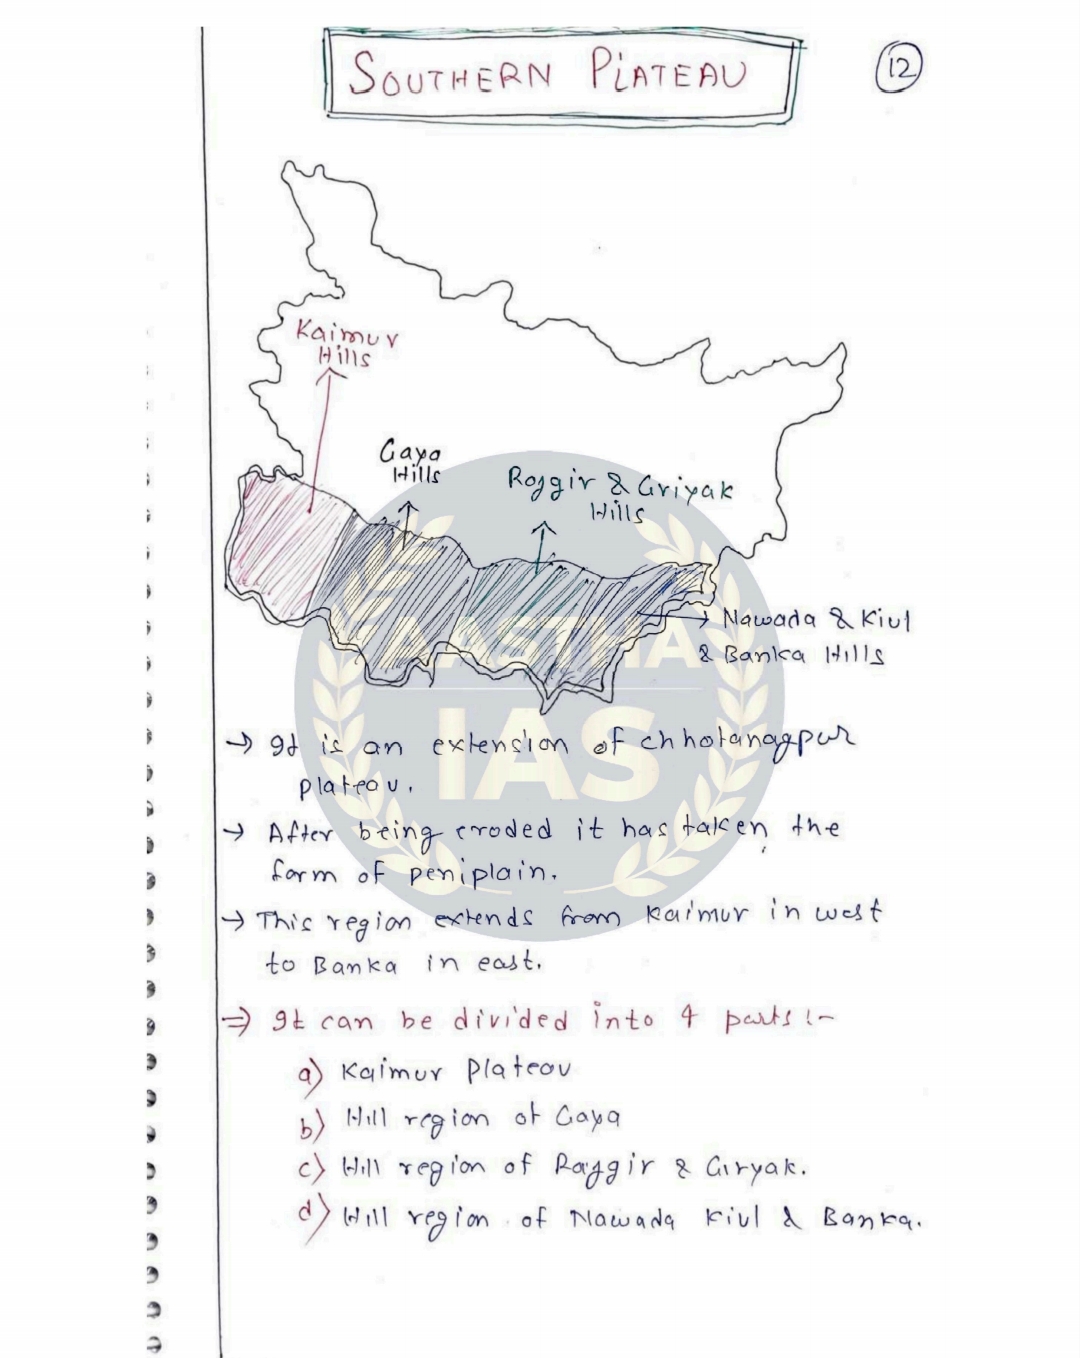 SOUTHERN PLATEAU
12
Kaimur
Hills
Gaya
Hills
Rajgir & Griyak
Hills
Nawada & Kiul
& Banka Hills
AASTHA
IAS
→ It is an extension of chhotanagpur
plateau.
→ After being eroded it has taken the
form of peniplain.
→ This region extends from Kaimur in west
to Banka in east.
⇒ It can be divided into 4 parts :-
a) Kaimur Plateau
b) Hill region of Gaya
c) Hill region of Rajgir & Giryak.
d) Hill region of Nawada Kiul & Banka.